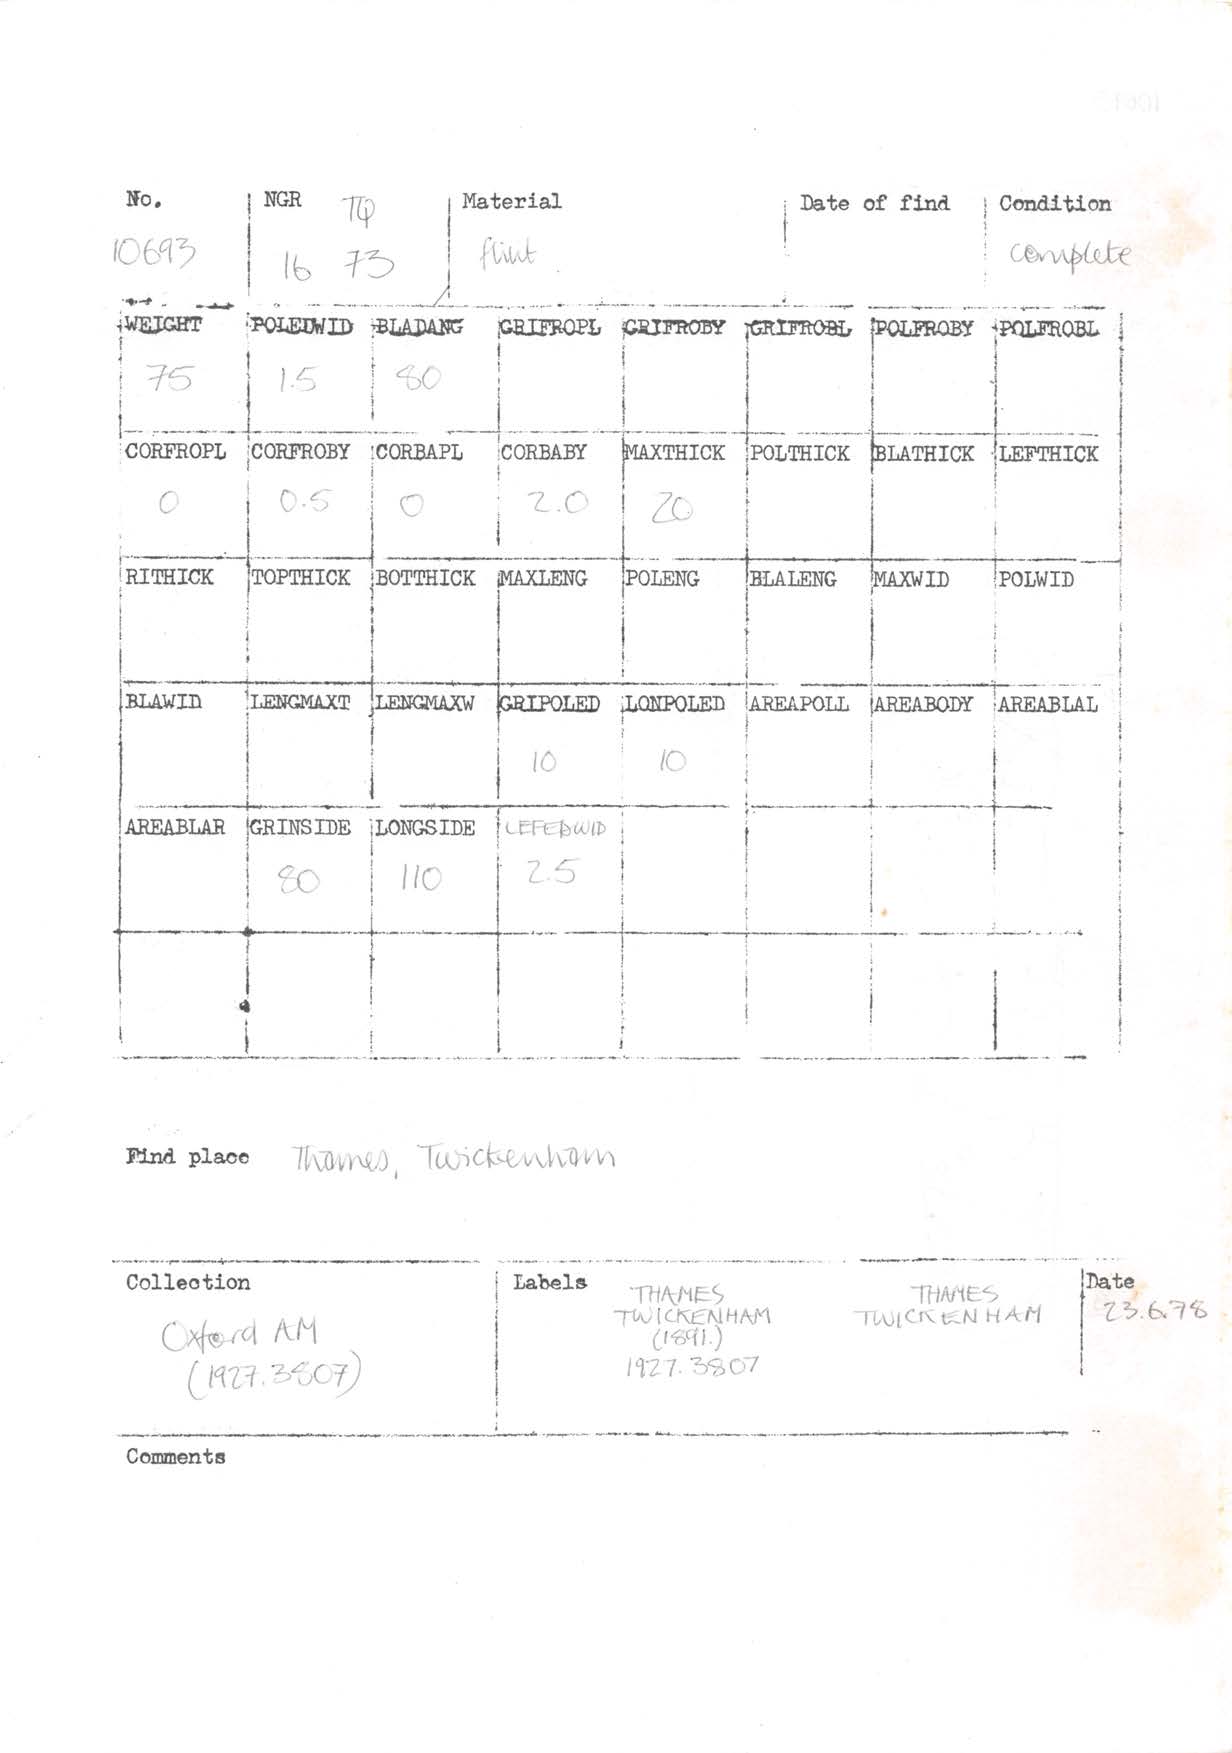 No. NGR TQ Material Date of find Condition
10693 16 73 flint complete
WEIGHT POLEDWID BLADANG GRIFROPL GRIFROBY GRIFROBL POLFROBY POLFROBL
75 1.5 80
CORFROPL CORFROBY CORBAPL CORBABY MAXTHICK POLTHICK BLATHICK LEFTHICK
0 0.5 0 2.0 20
RITHICK TOPTHICK BOTTHICK MAXLENG POLENG BLALENG MAXWID POLWID
BLAWID LENGMAXT LENGMAXW GRIPOLED LONPOLED AREAPOLL AREABODY AREABLAL
10 10
AREABLAR GRINSIDE LONGSIDE LEFEDWID
80 110 2.5
Find place Thames, Twickenham
Collection
Oxford AM
(1927.3807)
Labels
THAMES
TWICKENHAM
(1891.)
1927.3807
THAMES
TWICKENHAM
Date
23.6.78
Comments